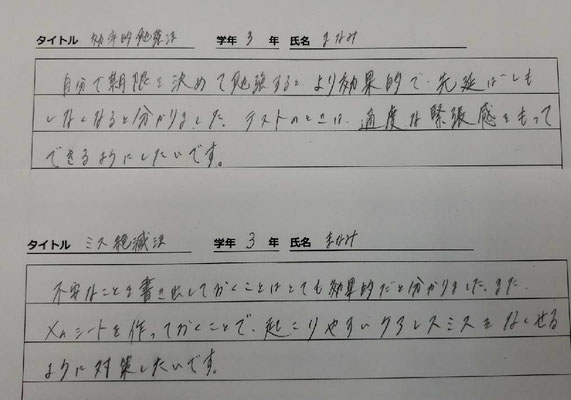 タイトル 効率的勉強法 学年 3 年 氏名 まなみ
自分で期限を決めて勉強すると より効果的で、先延ばしも
しなくなると分かりました。テストのときは、適度な緊張感をもって
できるようにしたいです。
タイトル ミス絶滅法 学年 3 年 氏名 まなみ
不安なことを書き出しておくことはとても効果的だと分かりました。また、
シートを作っておくことで、起こりやすいケアレスミスをなくせる
ように対策したいです。